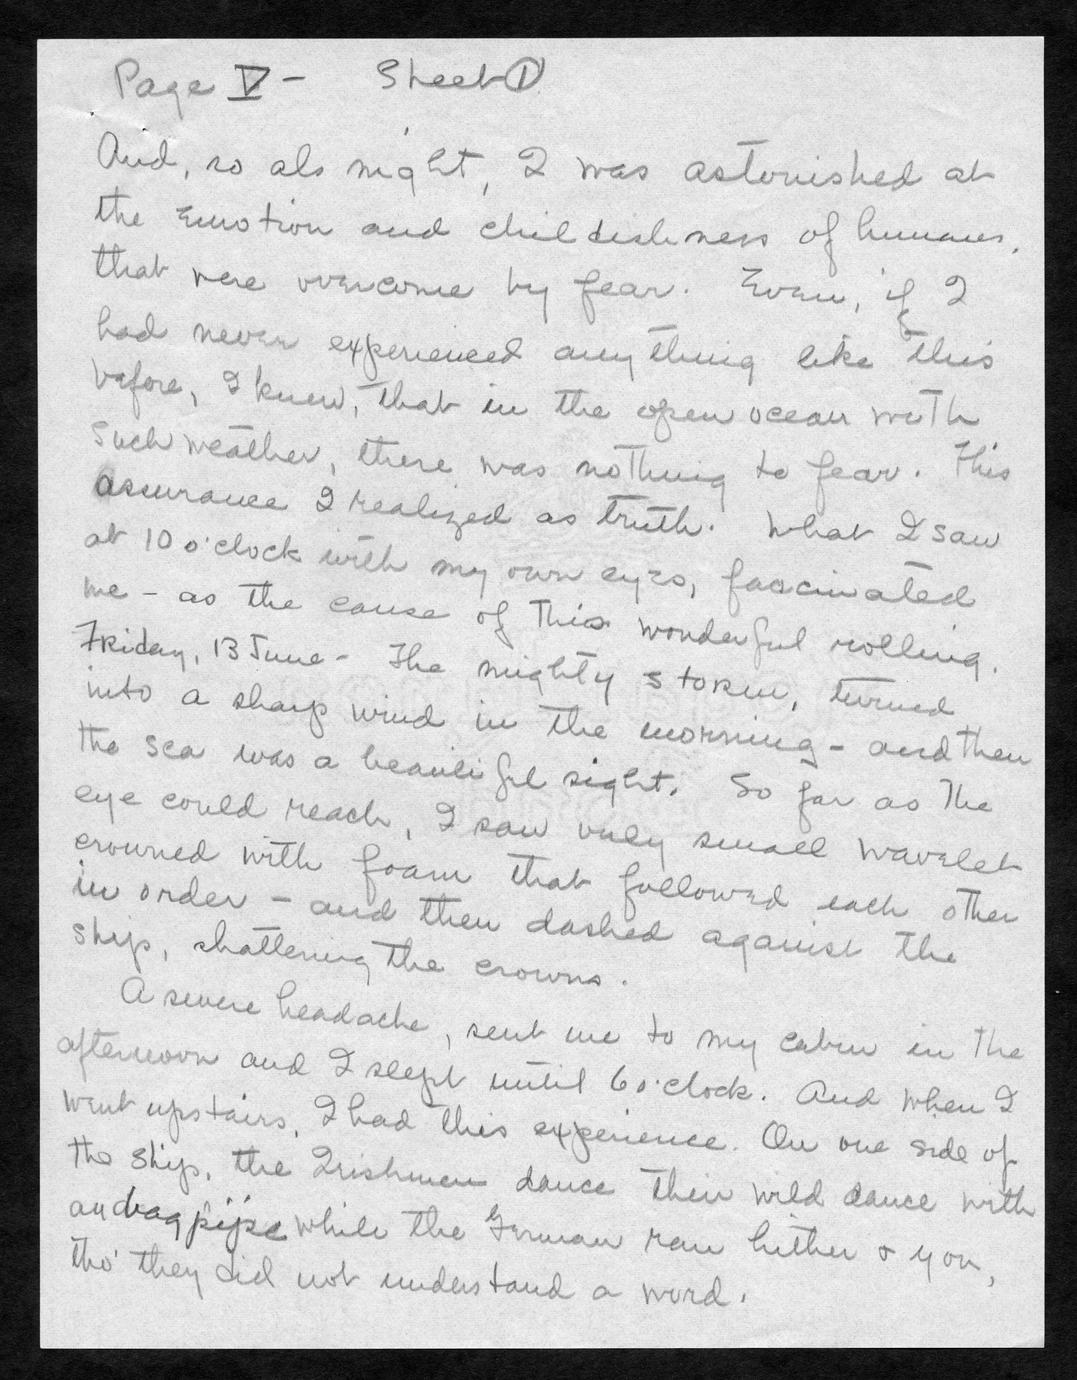 Page V - Sheet 1
And, so als night, I was astonished at
the Emotion and childishness of humans,
that were overcome by fear. Even, if I
had never experienced anything like this
before, I knew, that in the open ocean with
such weather, there was nothing to fear. This
assurance I realized as truth. What I saw
at 10 o'clock with my own eyes, fascinated
me - as the cause of this wonderful rolling.
Friday, 13 June - The mighty storm, turned
into a sharp wind in the morning - and then
the sea was a beautiful sight. So far as the
eye could reach, I saw only small wavelet
crowned with foam that followed each other
in order - and then dashed against the
ship, shattering the crowns.
A severe headache, sent me to my cabin in the
afternoon and I slept until 6 o'clock. And when I
went upstairs, I had this experience. On one side of
the ship, the Irishmen dance their wild dance with
an bagpipe while the German ran hither & yon,
tho' they did not understand a word.